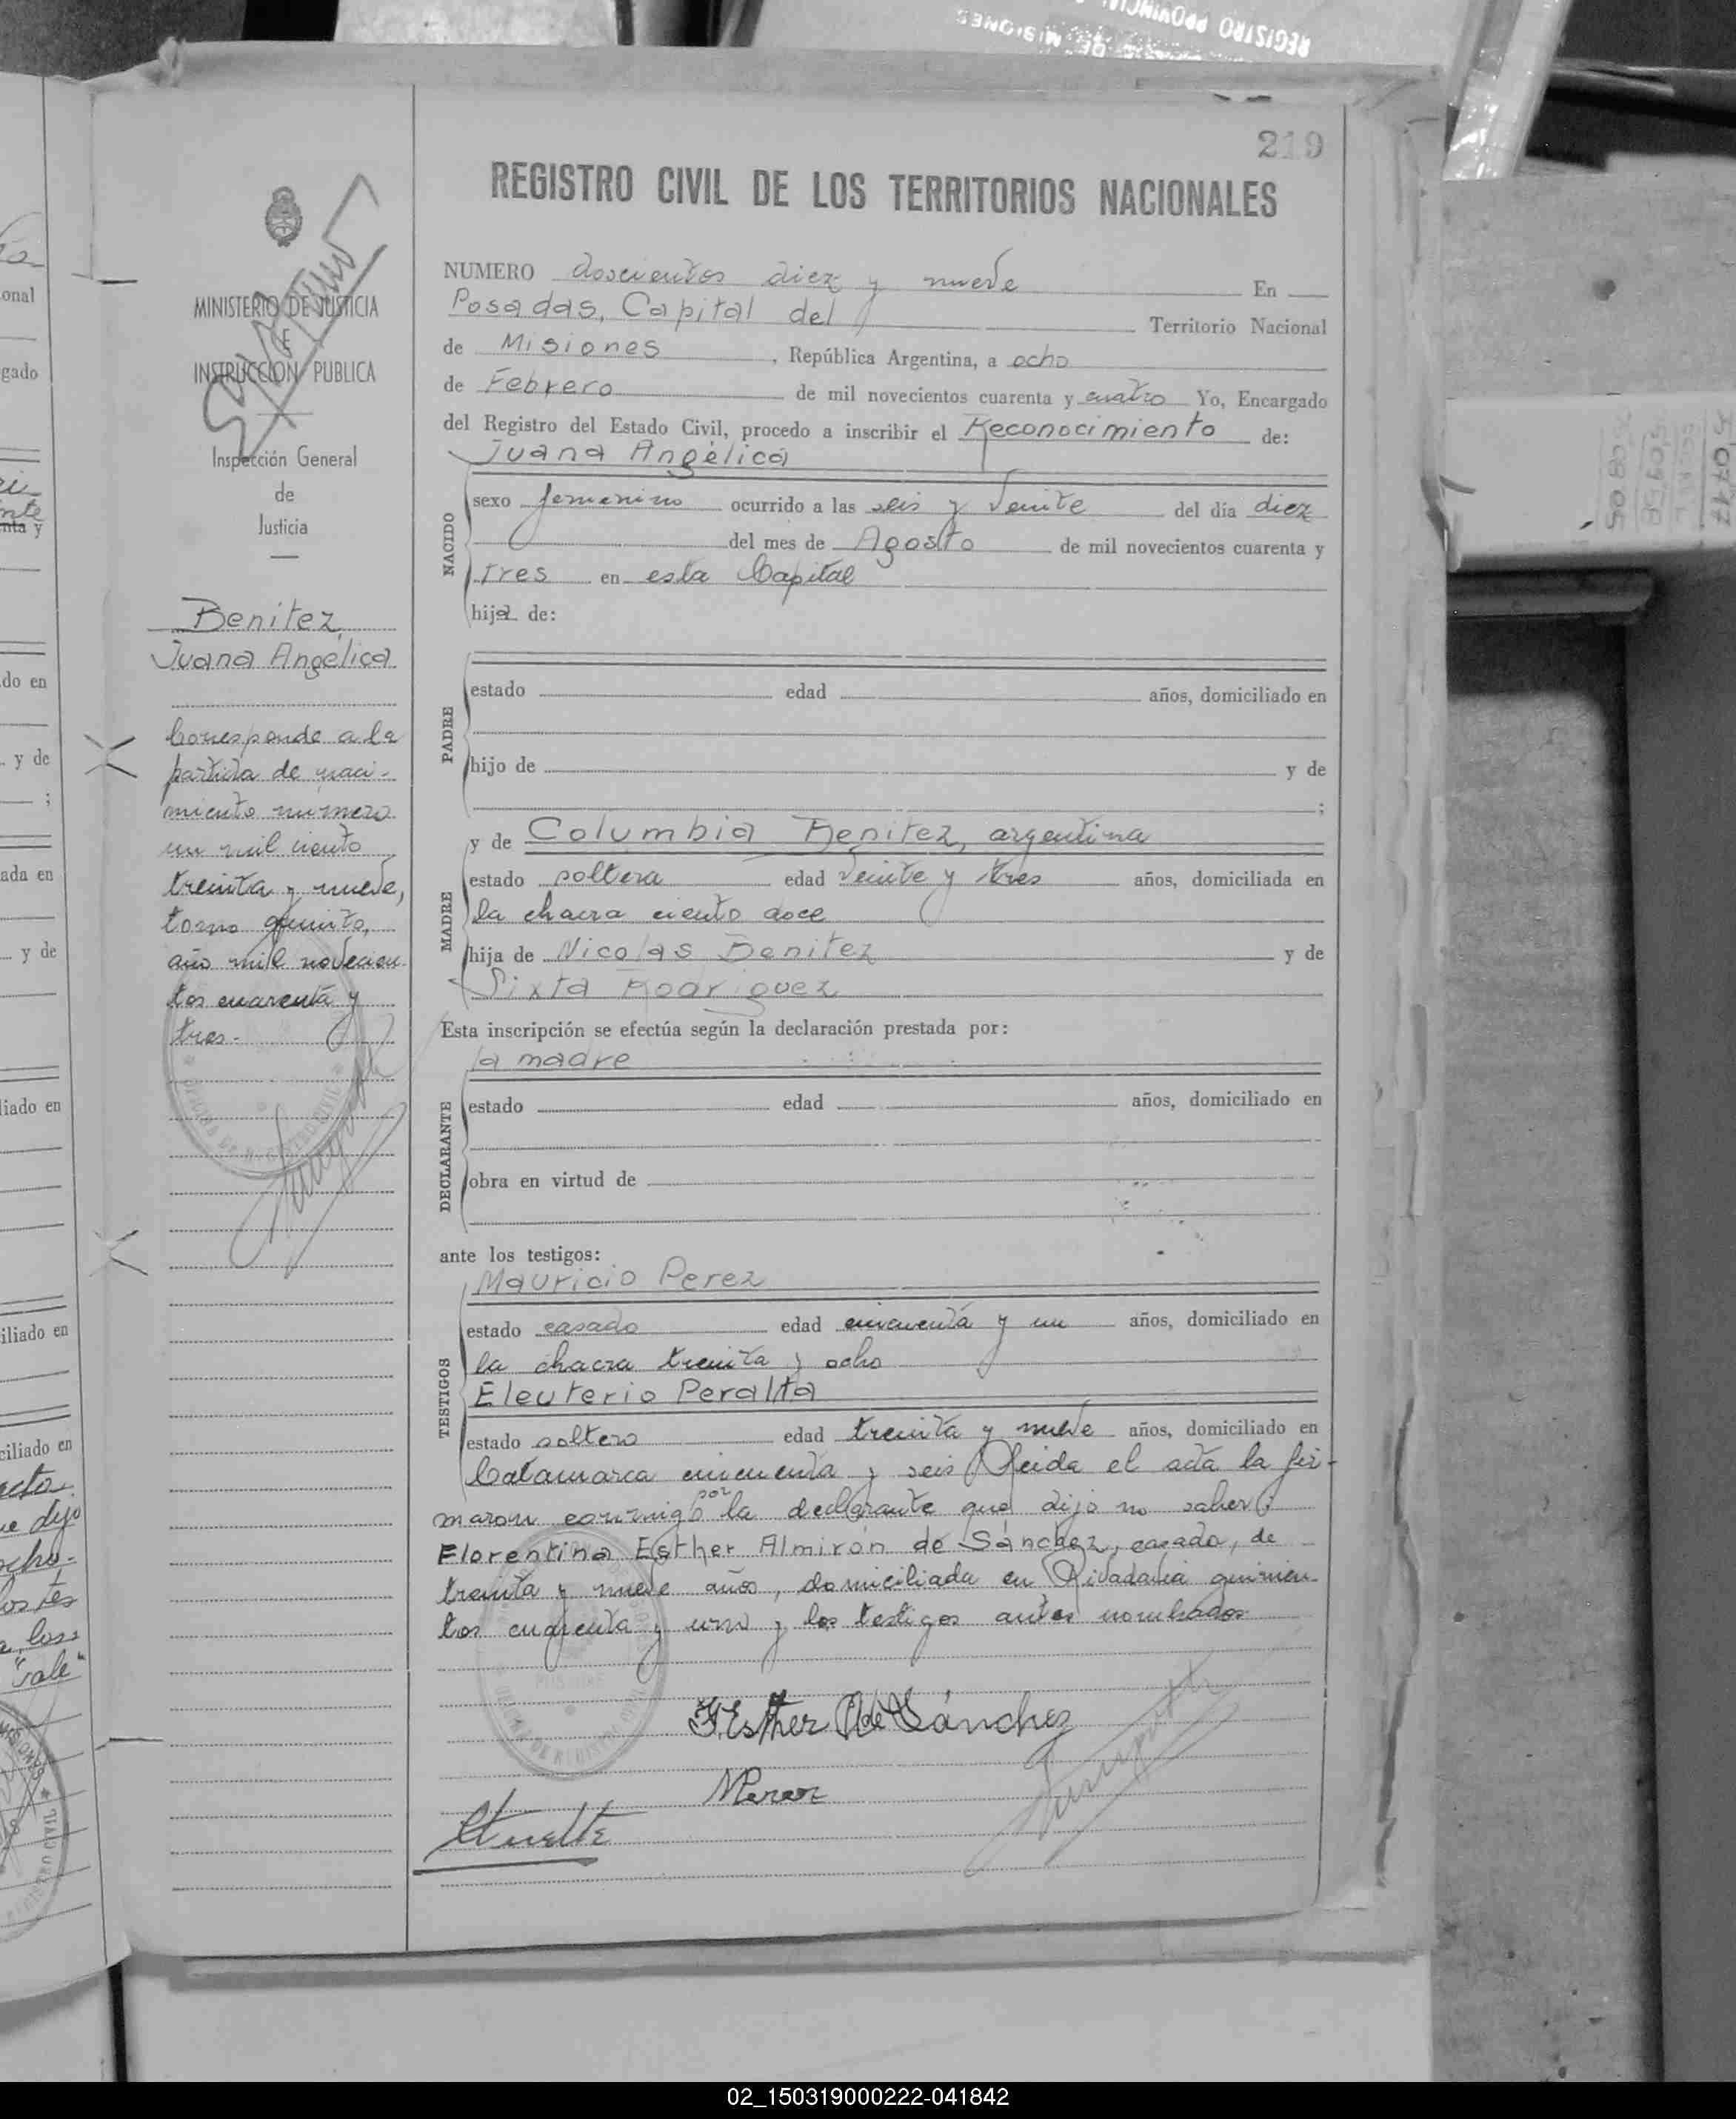 219
REGISTRO CIVIL DE LOS TERRITORIOS NACIONALES
NUMERO doscientos diez y nueve En
Posadas, Capital del Territorio Nacional
de Misiones, República Argentina, a ocho
de Febrero de mil novecientos cuarenta y cuatro Yo, Encargado
del Registro del Estado Civil, procedo a inscribir el Reconocimiento de:
Juana Angélica
NACIDO
sexo femenino ocurrido a las seis y veinte del día diez
del mes de Agosto de mil novecientos cuarenta y
tres en esta Capital
hija de:
PADRE
estado edad años, domiciliado en
hijo de y de
;
MADRE
y de Columbia Benitez, argentina
estado soltera edad veinte y tres años, domiciliada en
la chacra ciento doce
hija de Nicolas Benitez y de
Sixta Rodriguez
Esta inscripción se efectúa según la declaración prestada por:
la madre
DECLARANTE
estado edad años, domiciliado en
obra en virtud de
ante los testigos:
TESTIGOS
Mauricio Perez
estado casado edad cincuenta y un años, domiciliado en
la chacra treinta y ocho
Eleuterio Peralta
estado soltero edad treinta y nueve años, domiciliado en
Catamarca cincuenta y seis Leida el acta la fir-
maron conmigo por la declarante que dijo no saber
Florentina Esther Almirón de Sánchez, casada, de
treinta y nueve años, domiciliada en Rivadavia quinien-
tos cuarenta y uno y los testigos antes nombrados
F Esther de Sánchez
MPerez
MINISTERIO DE JUSTICIA
E
INSTRUCCION PUBLICA
Inspección General
de
Justicia
Benitez,
Juana Angélica
Corresponde a la
partida de naci-
miento número
un mil ciento
treinta y nueve,
tomo quinto,
año mil novecien-
tos cuarenta y
tres.
onal
gado
y de
ada en
y de
iliado en
ciliado en
acta.
ue dijo
"vale"
REGISTRO PROVINCIAL
DE MISIONES
02_150319000222-041842